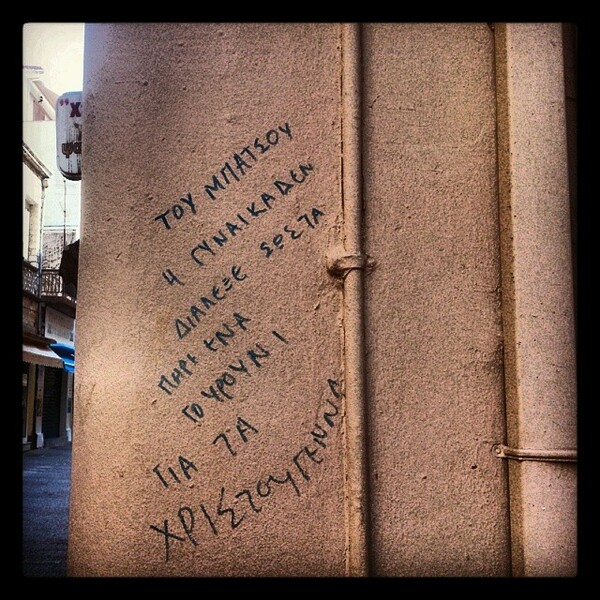 ΤΟΥ ΜΠΑΤΣΟΥ
Η ΓΥΝΑΙΚΑ ΔΕΝ
ΔΙΑΛΕΞΕ ΣΩΣΤΑ
ΠΗΡΕ ΕΝΑ
ΓΟΥΡΟΥΝΙ
ΓΙΑ ΤΑ
ΧΡΙΣΤΟΥΓΕΝΝΑ